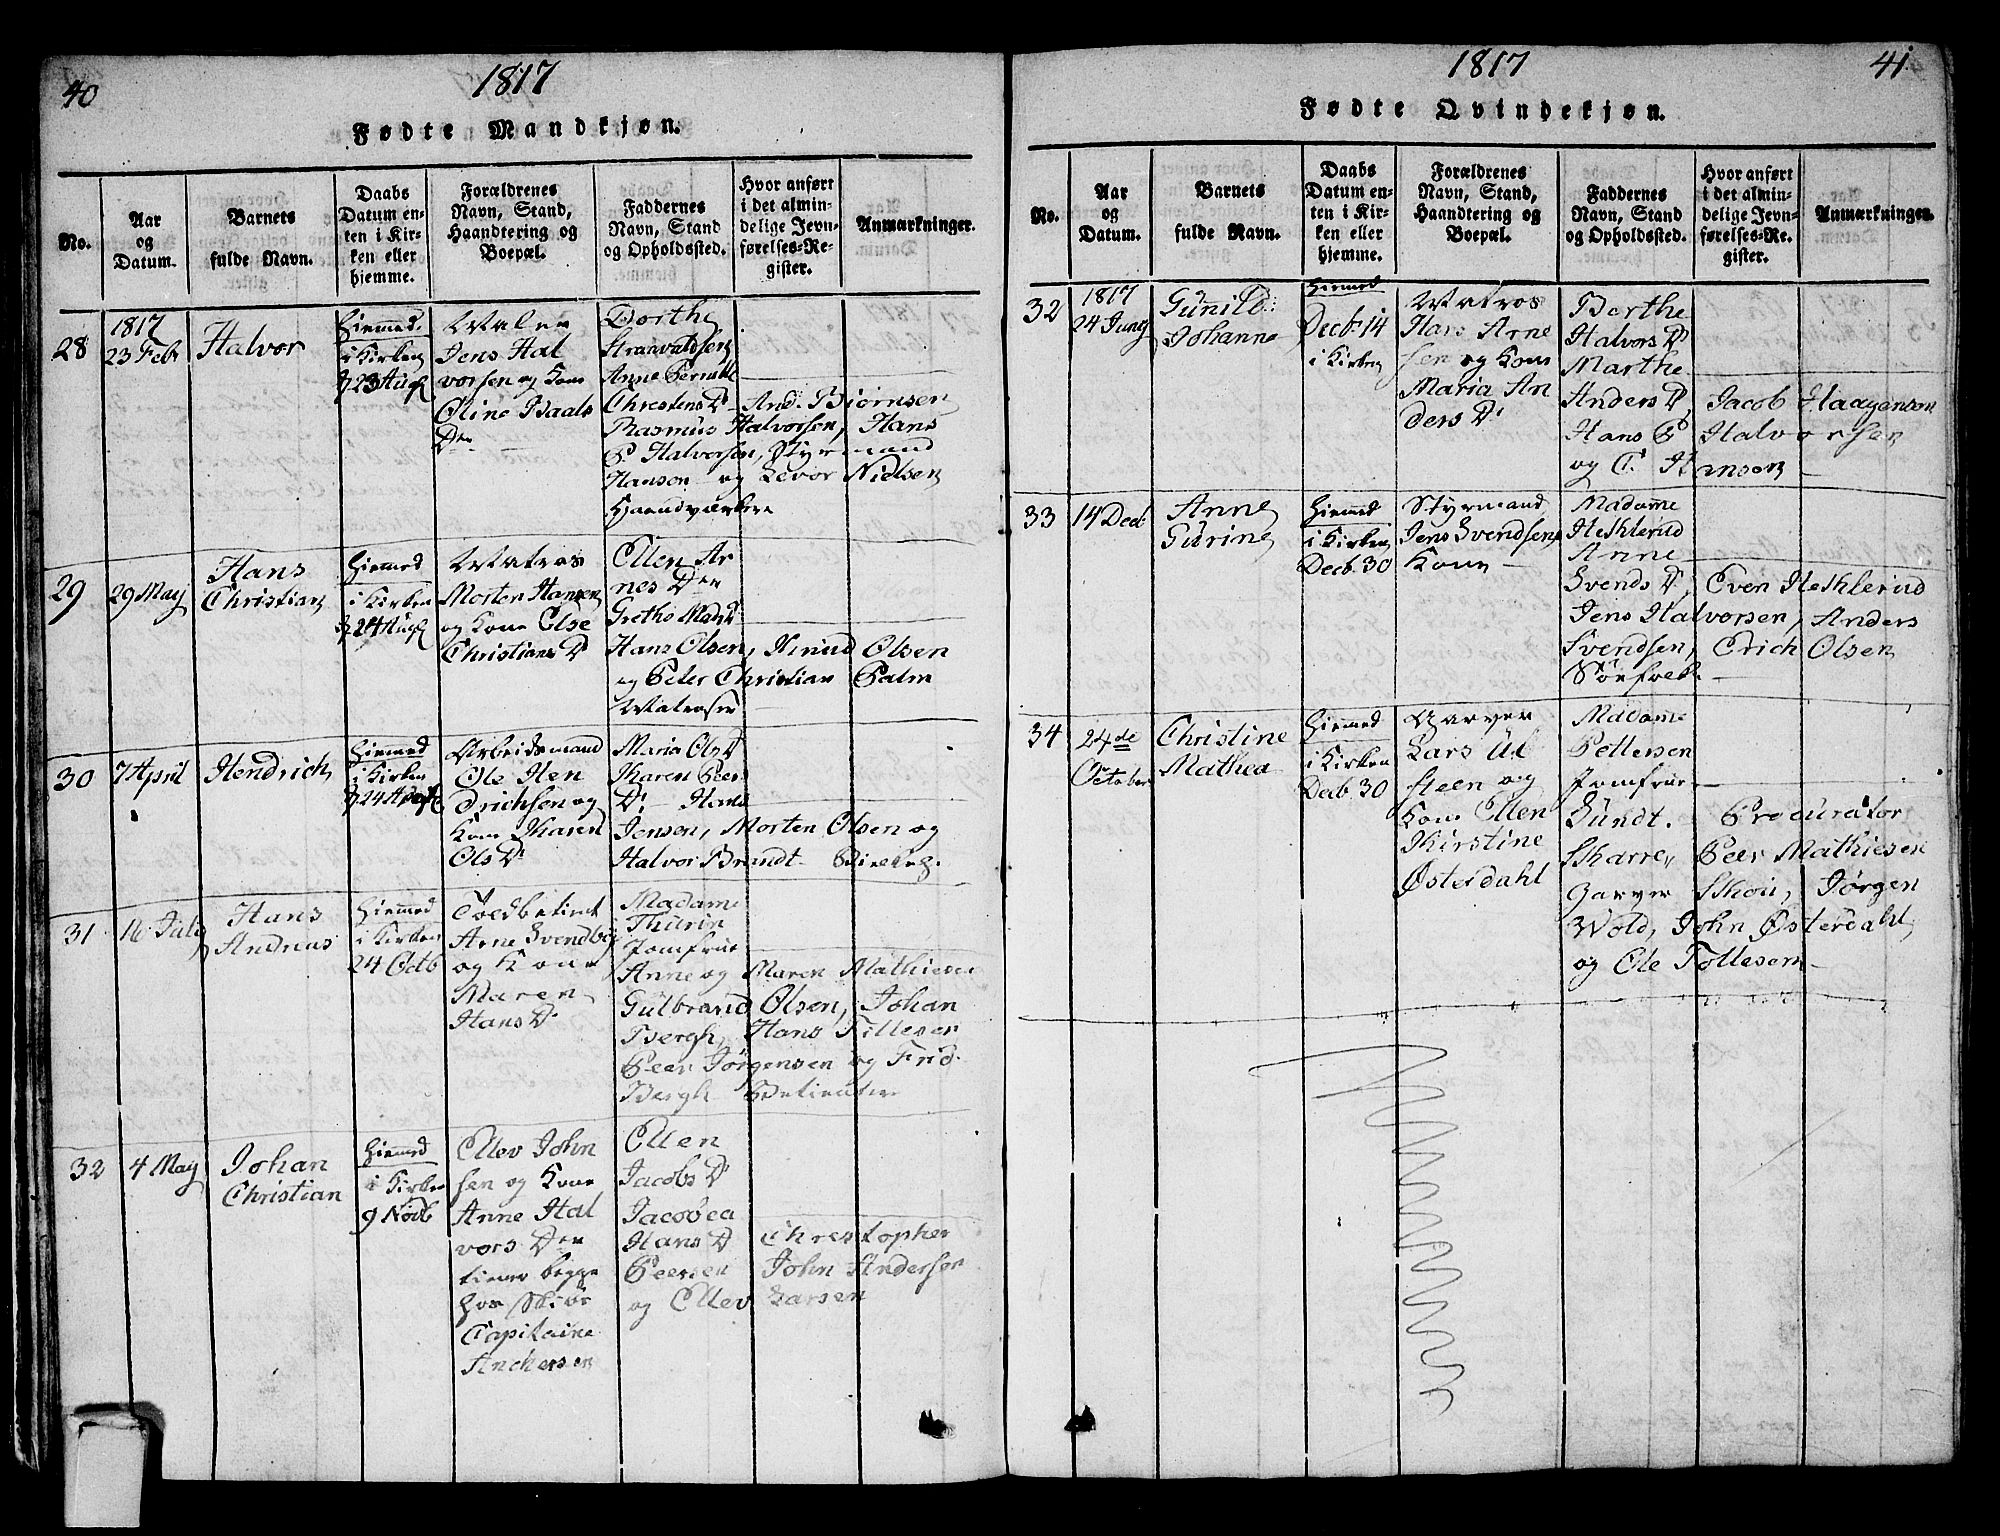 40
1817
Fødte Mandkjøn.
No.
Aar
og
Datum.
Barnets
fulde Navn.
Daabs
Datum en-
ten i Kir-
ken eller
hjemme.
Forældrenes
Navn, Stand,
Haandtering og
Boepæl.
Faddernes
Navn, Stand
og Opholdssted.
Hvor anført
i det almin-
delige Jevn-
førelses-Re-
gister.
Anmærkninger.
28
1817
23 Febr
Halvor
Hiemmed.
i Kirken
23 Aug
Jens Hal
vorsen og Kone
Oline Baals
Dtr
Dorthe
Anne Pernille
Chrestens D. And. Biørnsen
Rasmus Halvorsen, Hans
P. Halvorsen, Styrmand
Hanson og Levor Nielsen
Haandværkere
29
29 May
Hans
Christian
Hiemmed
i Kirken
24 Aug
Matros
Morten Hansen
og Kone Else
Christians D
Ellen Ar
nes Dtr
Grethe Mads D
Hans Olsen, Knud Olsen
og Peter Christian Palm
Matroser
30
7 April
Hendrich
Hiemmed
i Kirken
24
Arbeidsmand
Ole Hen
drichsen og
Kone Karen
Ols D
Maria Ols D
Karen Peer
D. Hans
Jensen, Morten Olsen og
Halvor Brandt
31
16 July
Hans
Andreas
Hiemmed
i Kirken
24 Octb
Toldbetient
Arne Svendsen
og Kone
Maren
Hans D
Madame
Thurin
Jomfrue
Anne og Maren Mathiesen
Gulbrand Olsen, Johan
Bergh, Hans Tillesen
Peer Jørgensen og Frid.
Bergh Betienter
32
4 May
Johan
Christian
Hiemmed
i Kirken
9 Novb
Ellev John
sen og Kone
Anne Hal
vors Dtr
tiener begge
hos Skibs
Capitaine
Anchersen
Ellen
Jacobs D
Jacobea
Hans D Christopher
Peersen John Andersen
og Ellev Larsen
1817
41.
Fødte Qvindekjøn.
No.
Aar
og
Datum.
Barnets
fulde Navn.
Daabs
Datum en-
ten i Kir-
ken eller
hjemme.
Forældrenes
Navn, Stand,
Haandtering og
Boepæl.
Faddernes
Navn, Stand
og Opholdssted.
Hvor anført
i det almin-
delige Jevn-
førelses-Re-
gister.
Anmærkninger.
32
1817
24 Juny
Gunild
Johanne
Hiemmed
Decb. 14
i Kirken
Matros
Hans Arne
sen og Kone
Maria An
ders D
Berthe
Halvors D
Marthe
Anders D, Jacob Haagensen
Hans P Halvorsen
og C. Hansen
33
14 Decb
Anne
Gurine
Hiemmed
i Kirken
Decb. 30
Styrmand
Jens Svendsens
Kone
Madame
Hethlerud
Anne
Svends D, Even Hethlerud
Jens Halvorsen, Anders
Svendsen, Erich Olsen
Søefolk
34
24de
October
Christine
Mathea
Hiemmed
i Kirken
Decb. 30
Garver
Lars Ul
steen og
Kone Ellen
Kirstine
Østerdahl
Madame
Pettersen
Jomfrue
Lundt. Procurator
Skarre, Peer Mathiesen
Garver Skou, Jørgen
Wold, John Østerdahl,
og Ole Tollesen